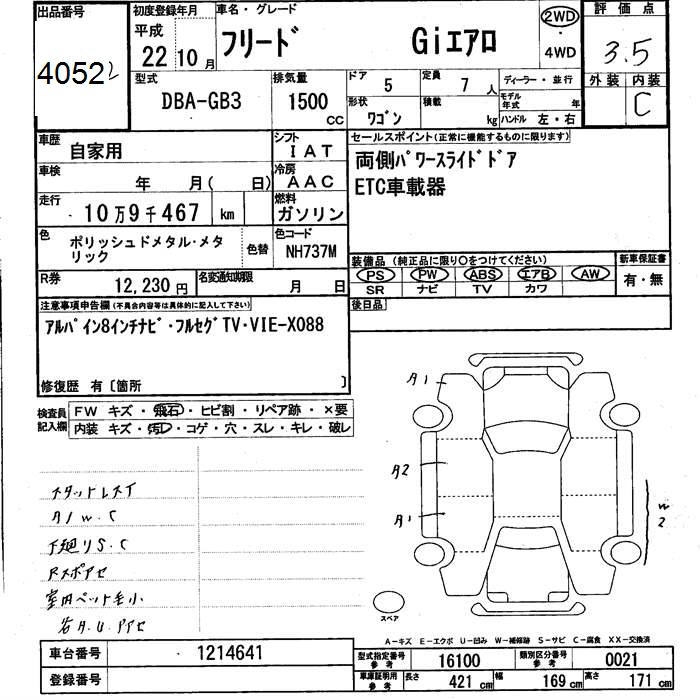 出品番号
40522
初度登録年月
平成
22年10月
車名・グレード
ﾌﾘｰﾄﾞ Giｴｱﾛ
2WD
・
4WD
評価点
3.5
型式
DBA-GB3
排気量
1500
CC
ドア 5
定員 7人
ディーラー・並行
モデル年式 年
形状 ﾜｺﾞﾝ
積載 kg
ハンドル 左・右
外装 内装
C
車歴 自家用
シフト IAT
セールスポイント(正常に機能するものに限ります)
両側ﾊﾟﾜｰｽﾗｲﾄﾞﾄﾞｱ
ETC車載器
車検 年 月( 日)
冷房 AAC
走行 ・10万9千467 km
燃料 ガソリン
色 ポリッシュドメタル・メタリック
色替
色コード NH737M
R券 12,230円
名変通知期限 月 日
装備品(純正品に限り○をつけてください)
PS PW ABS エアB AW
SR ナビ TV カワ
新車保証書
有・無
後日品
注意事項申告欄(不具合内容等は具体的に記入して下さい)
ｱﾙﾊﾟｲﾝ8ｲﾝﾁﾅﾋﾞ・ﾌﾙｾｸﾞTV・VIE-X088
修復歴 有〔箇所 〕
検査員記入欄
FW キズ・飛石・ヒビ割・リペア跡・×要
内装 キズ・汚レ・コゲ・穴・スレ・キレ・破レ
A1
A2
A1
W2
スタットレスT
A/W.C
下廻りS.C
Rスポアセ
室内ペット毛小
スペア
A-キズ E-エクボ U-凹み W-補修跡 S-サビ C-腐食 XX-交換済
車台番号 1214641
登録番号
型式指定番号 参考 16100
類別区分番号 参考 0021
車庫証明用 参考
長さ 421 cm
幅 169 cm
高さ 171 cm